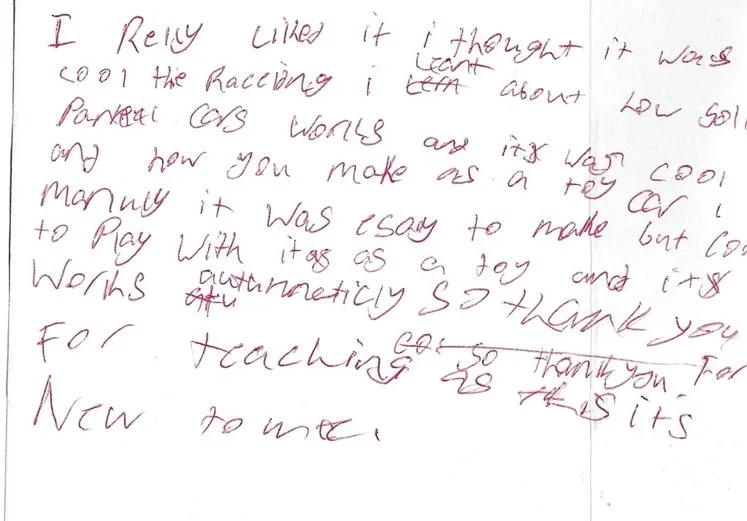 I Relly Liked it i thought it was
cool the Racciong i leant about how soll
Pannel cars works and its was cool
and how you make as a toy car i
it was esay to make but coo
to Play with itas as a toy and its
works authumeticly so thank you
For teaching so thankyou For
us this its
New to me.